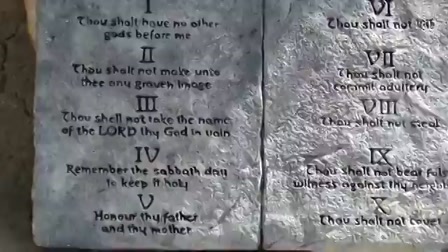 I
Thou shalt have no other
gods before me
II
Thou shalt not make unto
thee any graven image
III
Thou shalt not take the name
of the LORD thy God in vain
IV
Remember the sabbath day
to keep it holy
V
Honour thy father
and thy mother
VI
Thou shalt not
VII
Thou shalt not
commit adultery
VIII
Thou shalt not steal
IX
Thou shalt not bear
witness against thy
X
Thou shalt not covet